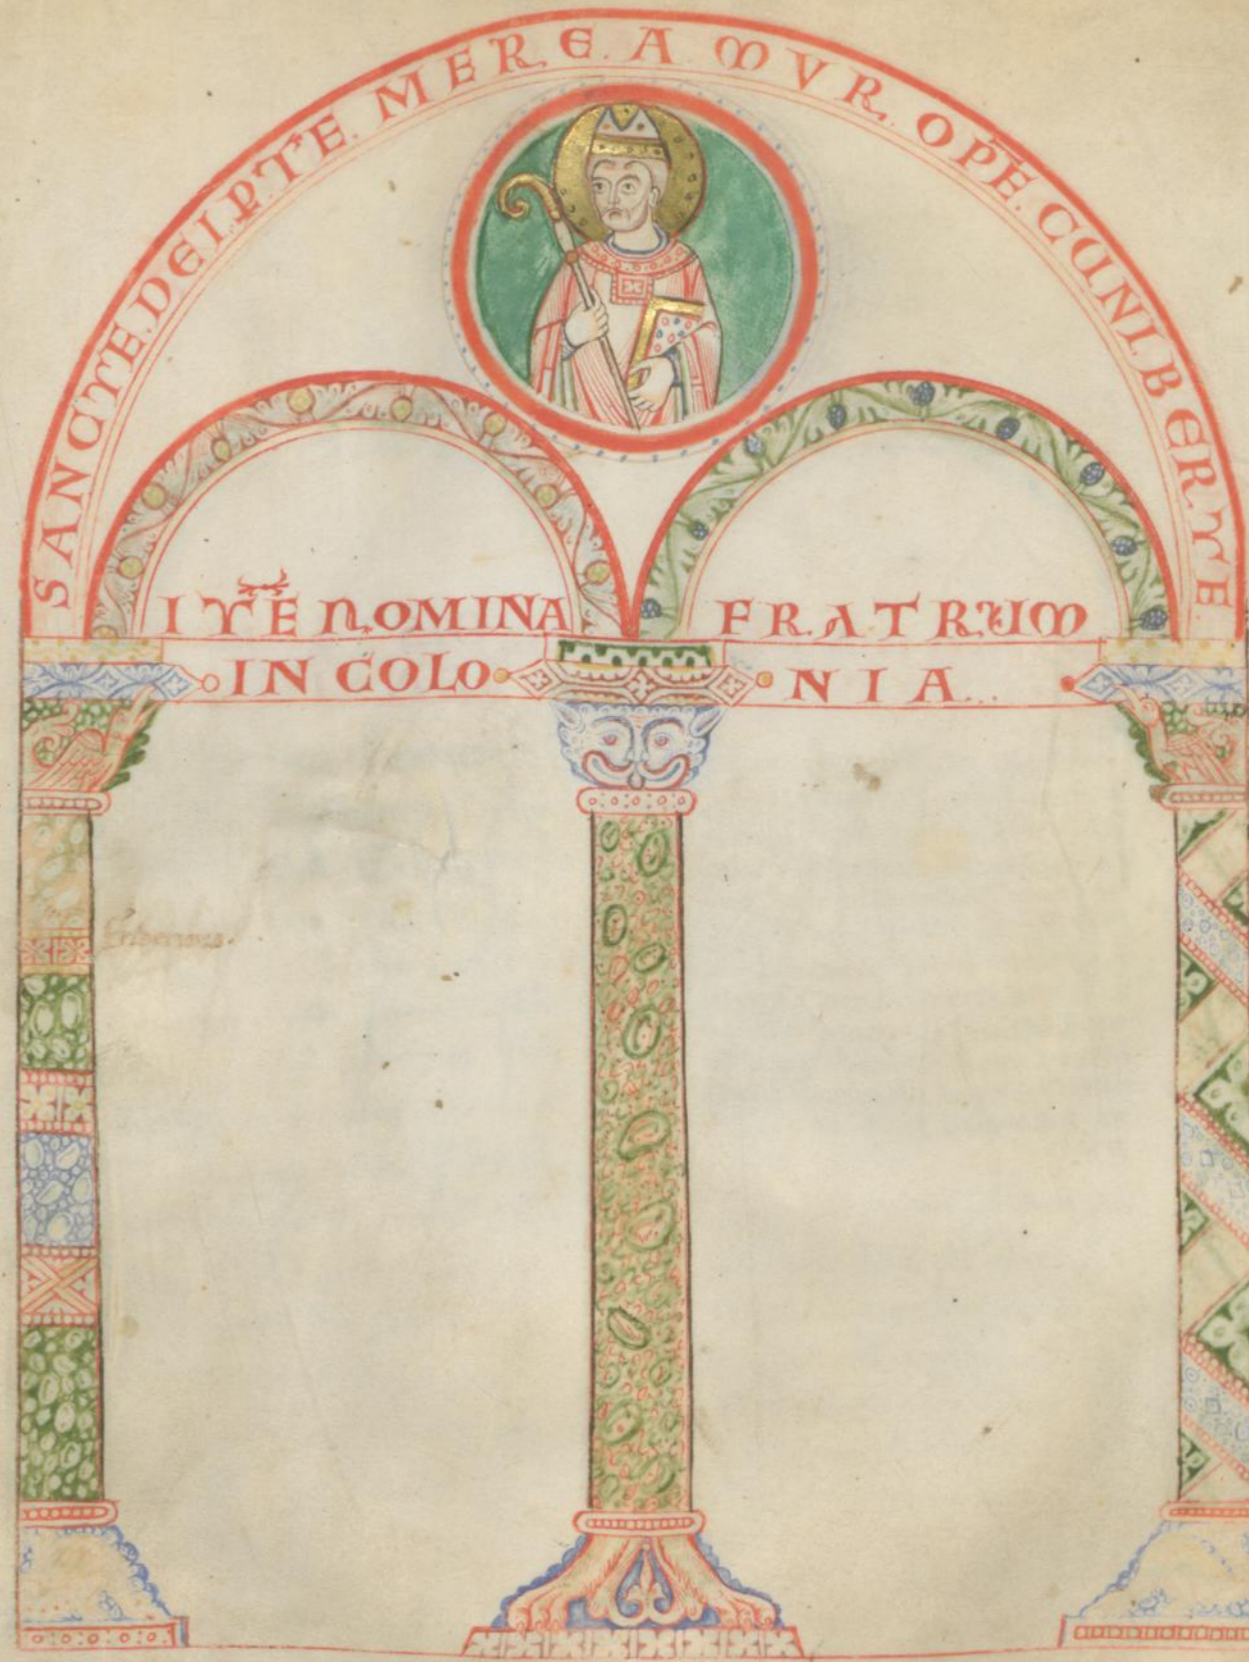 SANCTE. DEI. P. TE. MEREAMUR. OPE. CUNIBERTE
ITĒ NOMINA FRATRUM
IN COLONIA..